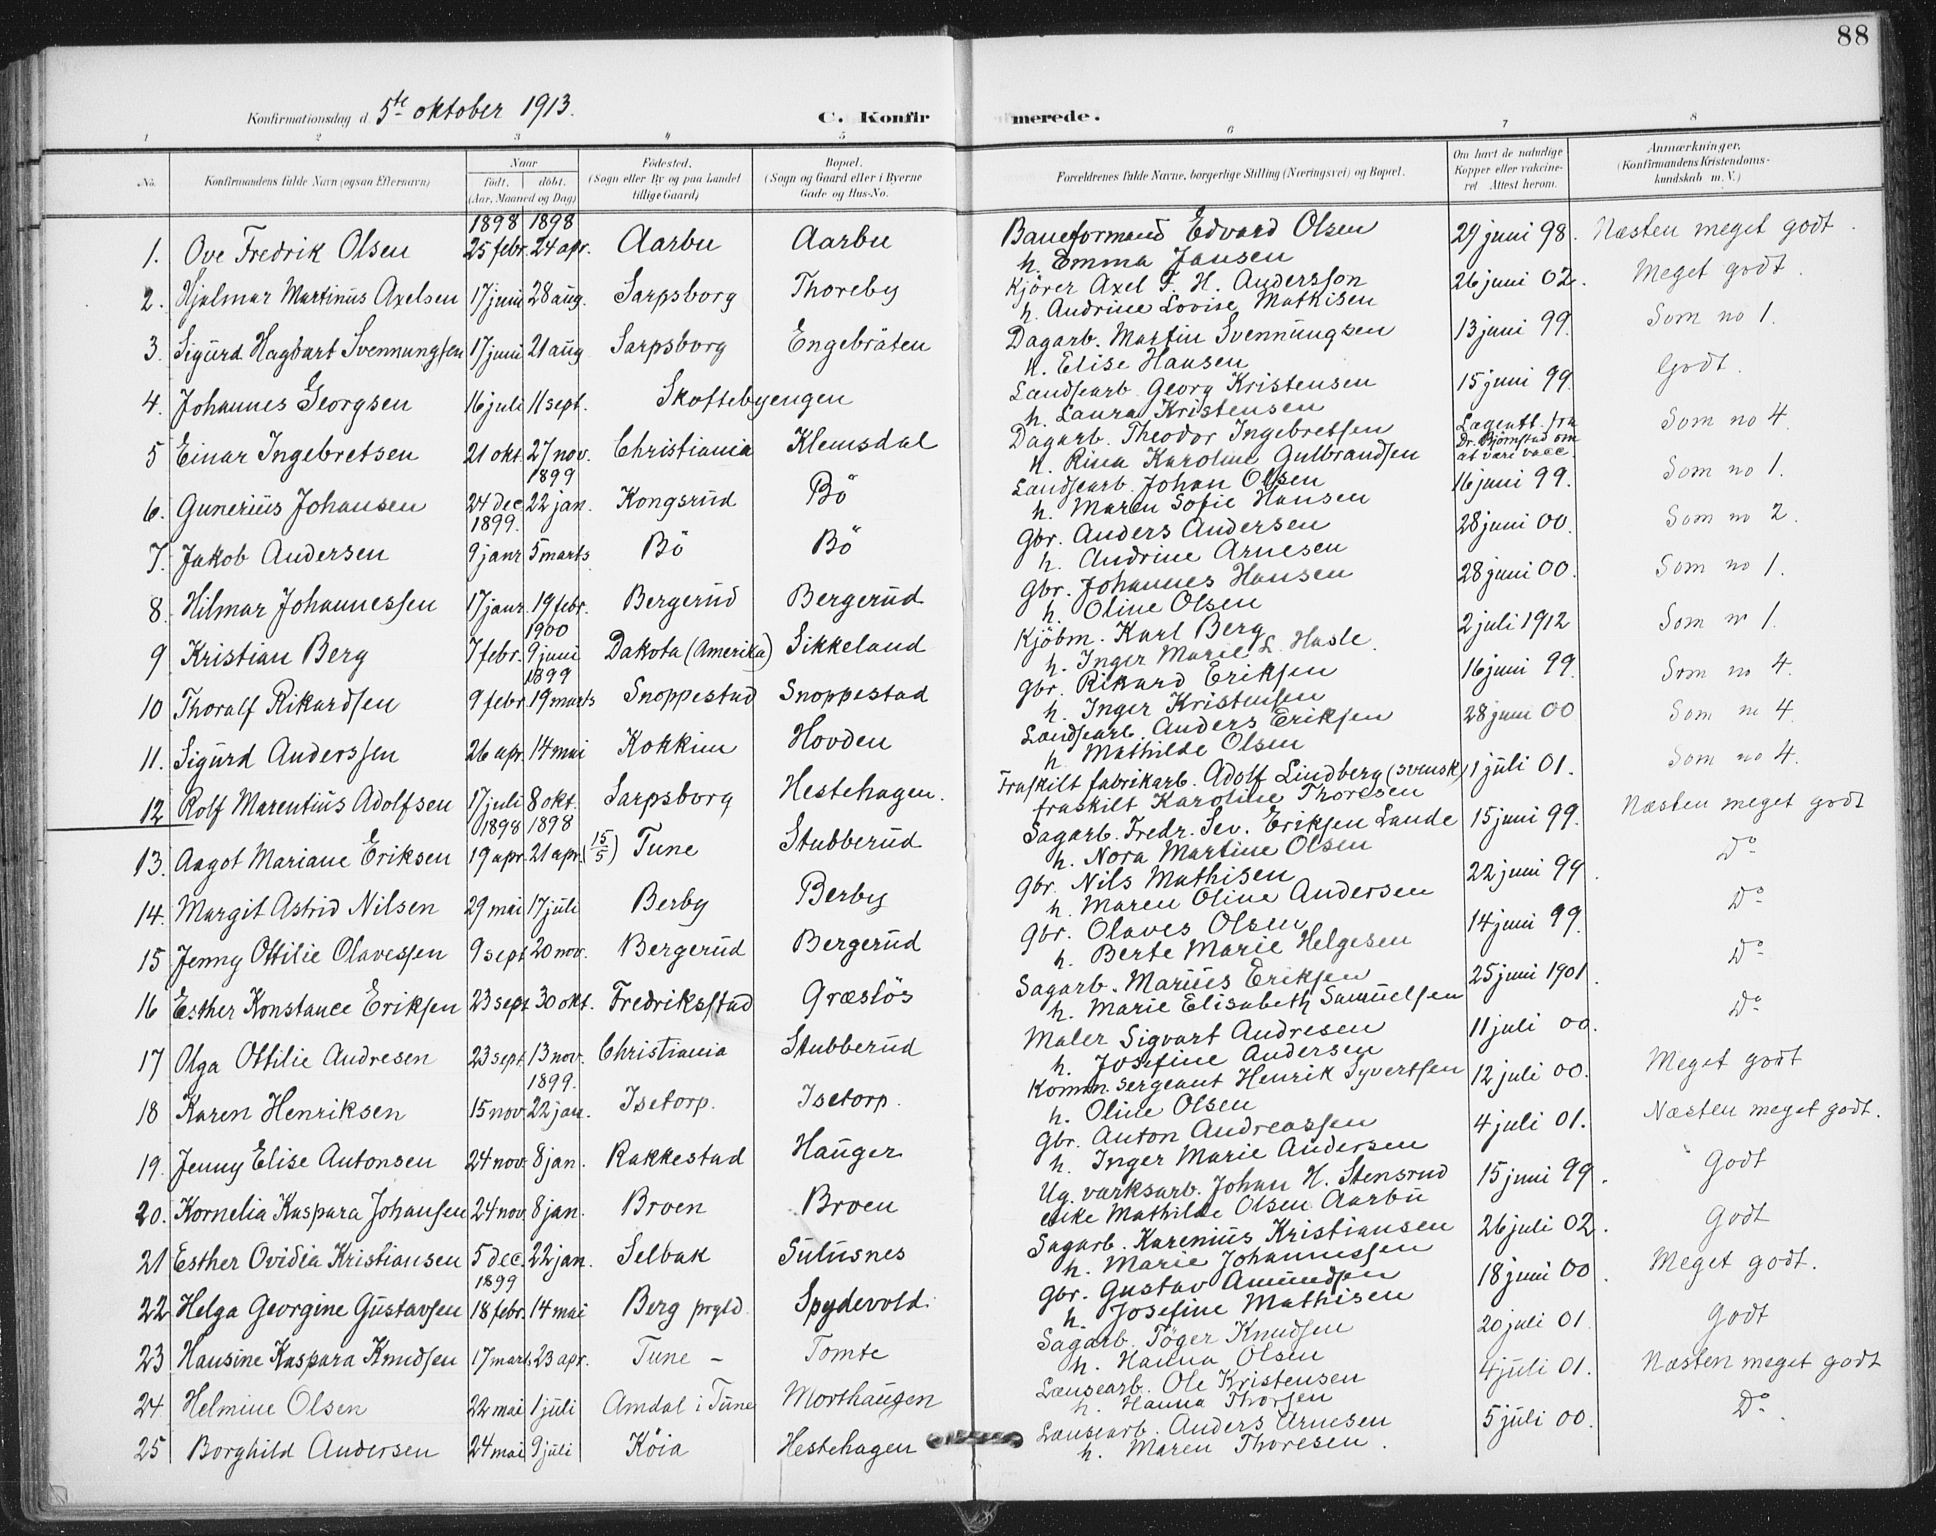 88
Konfirmationsdag d. 5te oktober 1913. C. Konfirmerede.
1 2 3 4 5 6 7 8
No. Konfirmandens fulde Navn (ogsaa Efternavn) Naar födt. döbt. (Aar, Maaned og Dag) Födested. (Sogn eller By og paa Landet tillige Gaard) Bopæl. (Sogn og Gaard eller i Byerne Gade og Hus-No. Forældrenes fulde Navne, borgerlige Stilling (Næringsvei) og Bopæl. Om havt de naturlige Kopper eller vakcineret Attest herom. Anmærkninger. (Konfirmandens Kristendomskundskab m. V.)
1898 1898
1. Ove Fredrik Olsen 25 febr. 24 apr. Aarbu Aarbu Baneformand Edvard Olsen 29 juni 98. Næsten meget godt.
h. Emma Jansen
2. Hjalmar Martinus Axelsen 17 juni 28 aug. Sarpsborg Thoreby Kjörer Axel F. H. Andersson 26 juni 02. Meget godt.
h. Andrine Lovise Mathisen
3. Sigurd Hagbart Svennungsen 17 juni 21 aug. Sarpsborg Engebråten Dagarb. Martin Svennungsen 13 juni 99. Som no 1.
h. Elise Hansen
4. Johannes Georgsen 16 juli 11 sept. Skoftebyengen Landsearb. Georg Kristensen 15 juni 99. Godt.
h. Laura Kristensen
5 Einar Ingebretsen 21 okt. 27 nov. Christiania Klemsdal Dagarb. Theodor Ingebretsen Lægeatt. fra Dr. Björnstad om at være vacc Som no 4
h. Rina Karoline Gulbrandsen
1899
6. Gunerius Johansen 24 dec. 22 jan. Kongsrud Bö Landsearb. Johan Olsen 16 juni 99. Som no 1.
h. Maren Sofie Hansen
1899.
7. Jakob Andersen 9 janr 5 marts Bö Bö Gbr. Anders Andersen 28 juni 00. Som no 2.
h. Andrine Arnesen
8. Hilmar Johannessen 17 janr. 19 febr. Bergerud Bergerud Gbr. Johannes Hansen 28 juni 00. Som no 1.
h. Oline Olsen
1900
9 Kristian Berg 7 febr. 9 juni Dakota (Amerika) Sikkeland Kjöbm. Karl Berg 2 juli 1912 Som nr 1.
h. Inger Marie L. Hasle.
1899
10 Thoralf Rikardsen 9 febr. 19 marts Snoppestad Snoppestad Gbr. Rikard Eriksen 16 juni 99. Som no 4.
h. Inger Kristensen
11. Sigurd Anderssen 26 apr. 14 mai Kokkim Hovden Landsearb. Anders Eriksen 28 juni 00 Som nr 4.
h. Mathilde Olsen
12 Rolf Marentius Adolfsen 17 juli 8 okt. Sarpsborg Hestehagen. Fraskilt fabrikarb. Adolf Lindberg (svensk) 1 juli 01. Som no 4.
fraskilt Karoline Thoresen
1898 1898
13. Aagot Mariane Eriksen 19 apr. 21 apr. (15/5) Tune Stubberud Sagarb. Fredr. Sev. Eriksen Lande 15 juni 99. Næsten meget godt
h. Nora Martine Olsen
14. Margit Astrid Nilsen 29 mai 17 juli Berby Berby Gbr. Nils Mathisen 22 juni 99. Do
h. Maren Oline Andersen
15 Jenny Ottilie Olavessen 9 sept 20 nov. Bergerud Bergerud Gbr. Olaves Olsen 14 juni 99. Do
h. Berte Marie Helgesen
16 Esther Konstance Eriksen 23 sept 30 okt. Fredriksstad Græslös Sagarb. Marius Eriksen 25 juni 1901. Do
h. Marie Elisabeth Samuelsen
17 Olga Ottilie Andresen 23 sept. 13 nov. Christiania Stubberud Maler Sigvart Andresen 11 juli 00. Do
h. Josefine Andersen
1899.
18 Karen Henriksen 15 nov. 22 jan. Isetorp. Isetorp. Komm. sergeant Henrik Syvertsen 12 juli 00. Meget godt
h. Oline Olsen
19. Jenny Elise Antonsen 24 nov. 8 jan. Rakkestad Hauger Gbr. Anton Andreassen 4 juli 01. Næsten meget godt.
h. Inger Marie Andersen
20. Kornelia Kaspara Johansen 24 nov. 8 jan. Broen Broen Ug. værksarb. Johan H. Stensrud 15 juni 99. Godt
enke Mathilde Olsen Aarbu
21 Esther Ovidia Kristiansen 5 dec. 22 jan. Selbak Sulusnes Sagarb. Karenius Kristiansen 26 juli 02. Godt
h. Marie Johannessen
1899
22 Helga Georgine Gustavsen 18 febr. 14 mai Berg prgld. Spydevold. Gbr. Gustav Amundsen 18 juni 00. Meget godt.
h. Josefine Mathisen
23 Hansine Kaspara Knudsen 17 mart. 23 apr. Tune – Tomte Sagarb. Töger Knudsen 20 juli 01. Godt
h. Hanna Olsen
24 Helmine Olsen 22 mai 1 juli Amdal i Tune Morthaugen Lænsearb. Ole Kristensen 4 juli 01. Næsten meget godt
h. Hanna Thorsen
25 Borghild Andersen 24 mai 9 juli Köia Hestehagen Lænsearb. Anders Arnesen 5 juli 00. Do.
h. Maren Thoresen.